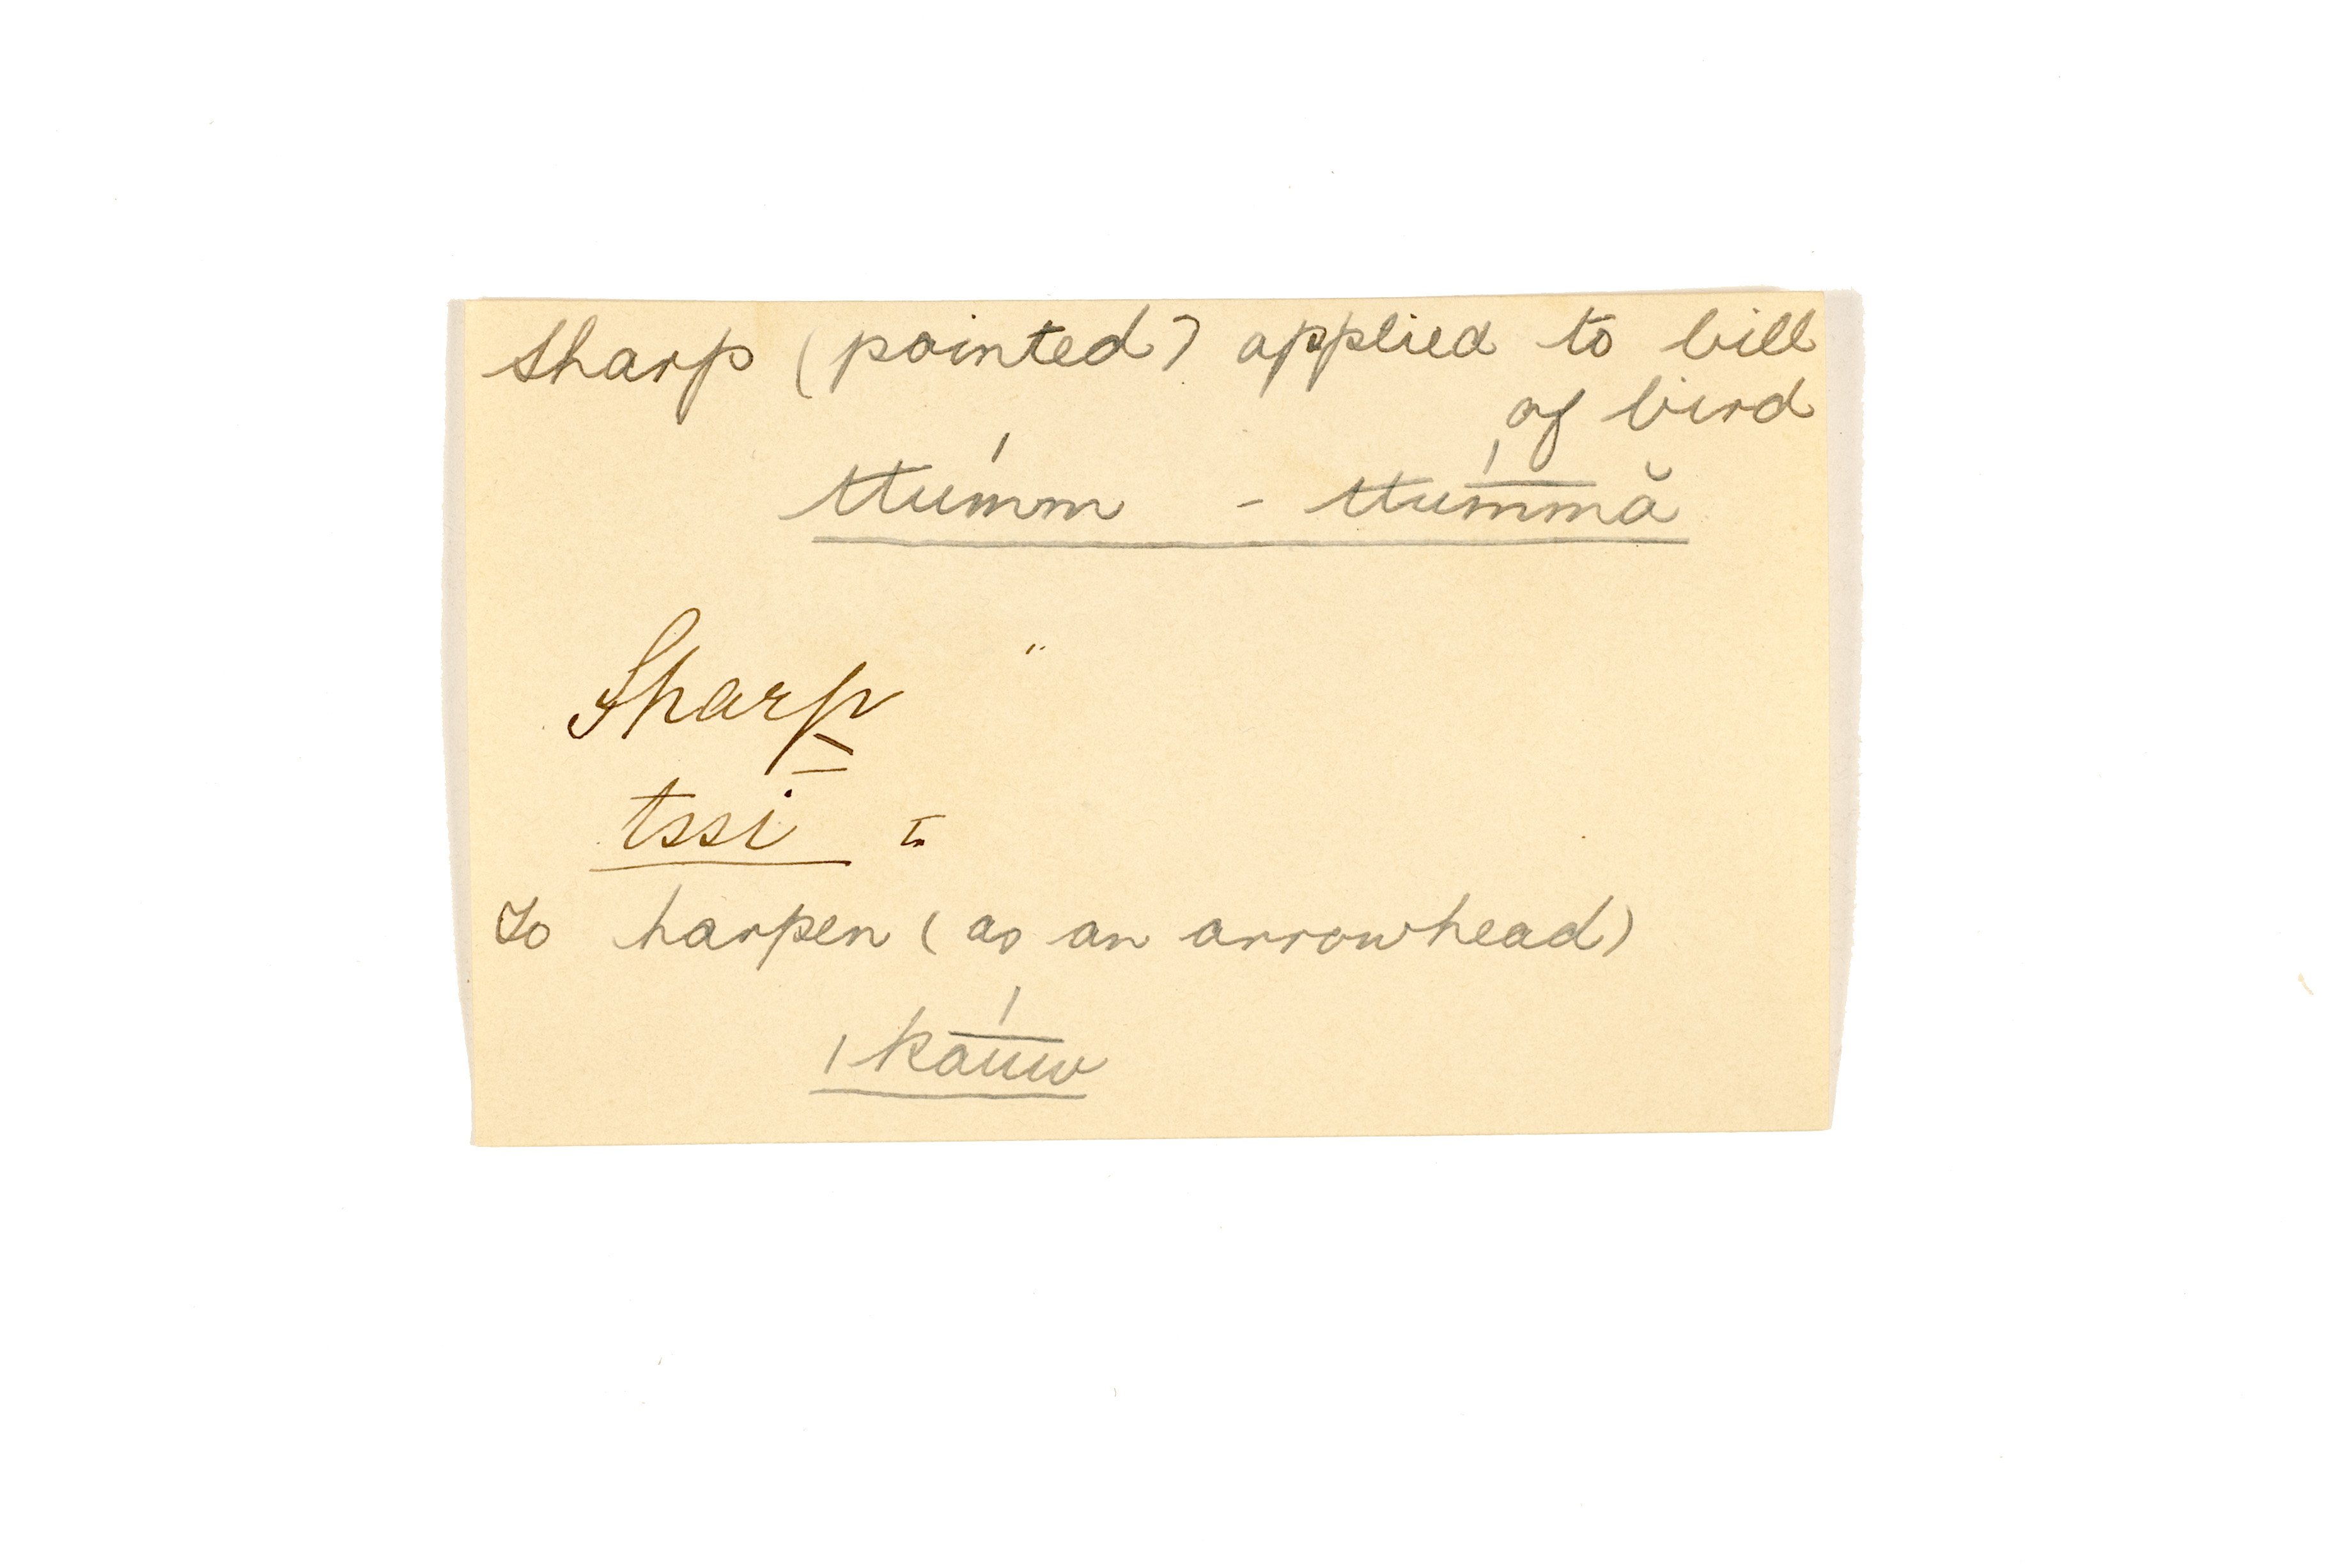 Sharp (pointed) applied to bill
of bird
ttúmm - ttúmmă
Sharp "
tssi
To harpen (as an arrowhead)